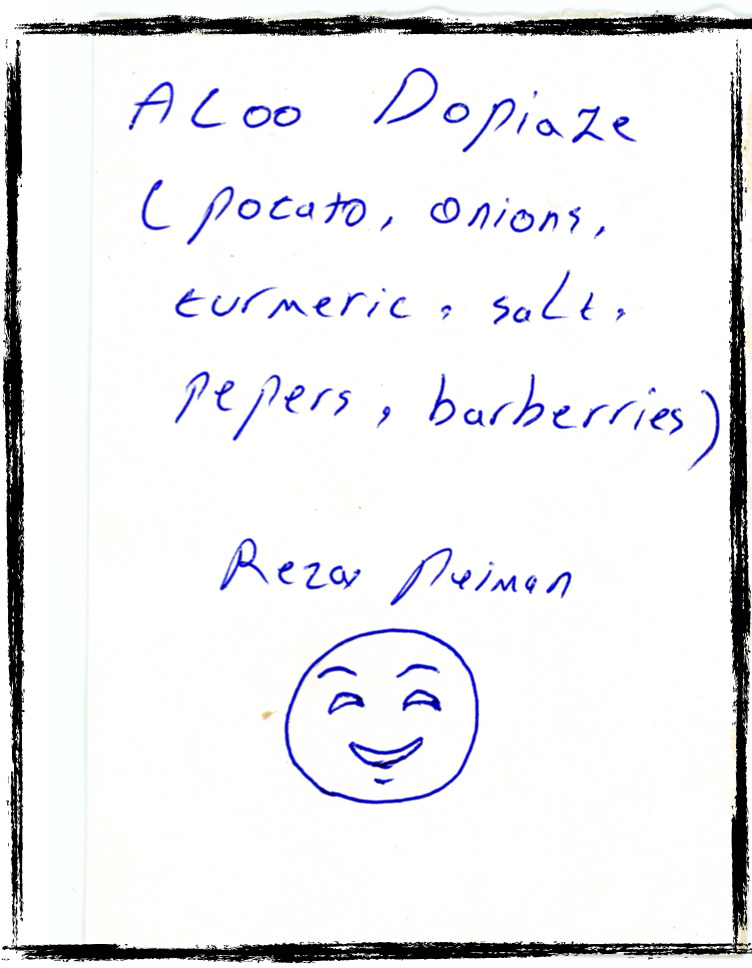 ALoo Dopiaze
(potato, onions,
turmeric, salt,
pepers, barberries)
Reza Peiman